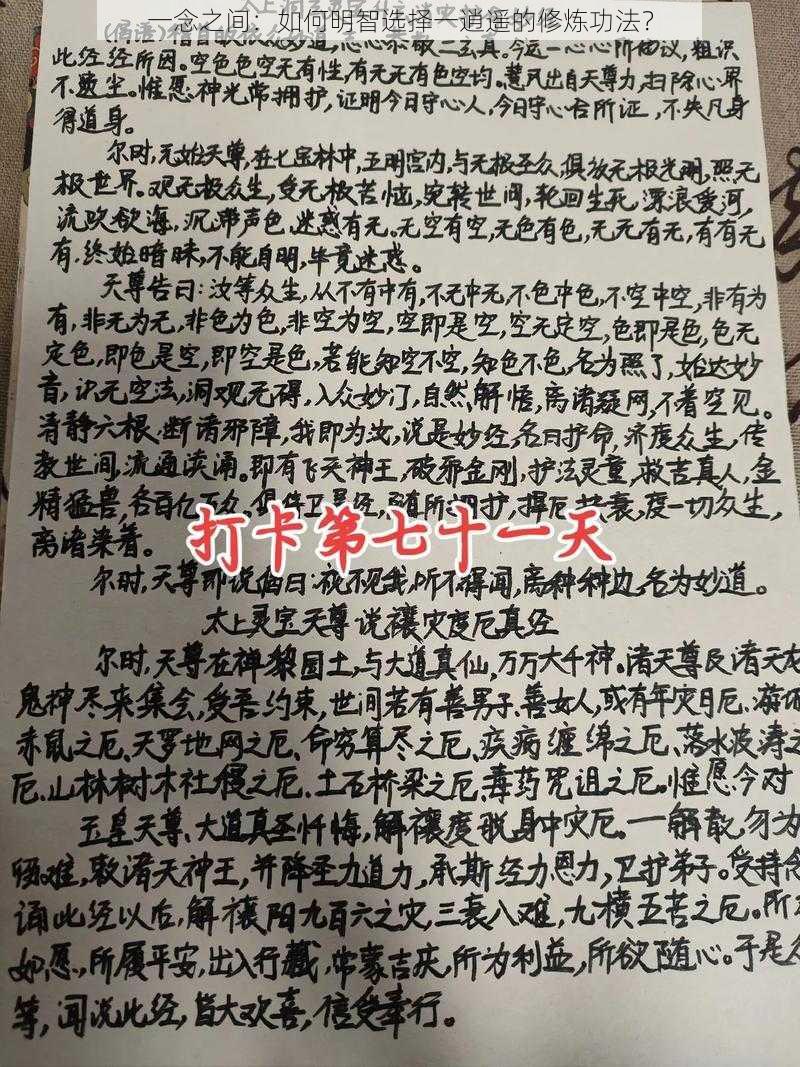 一念之间：如何明智选择一逍遥的修炼功法？
此经经所因。空色色空无有性，有无无有色空均。慧风出自天尊力，扫除心界
不数尘。惟愿神光常拥护，证明今日守心人，今日守心台所证，不失凡身
得道身。
尔时，无始天尊，在七宝林中，五明宫内，与无极圣众，俱放无极光明，照无
极世界。观无极众生，受无极苦恼，宛转世间，轮回生死，漂浪爱河，
流吹欲海，沉滞声色，迷惑有无。无空有空，无色有色，无无有无，有有无
有，终始暗昧，不能自明，毕竟迷惑。
天尊告曰：汝等众生，从不有中有，不无中无，不色中色，不空中空，非有为
有，非无为无，非色为色，非空为空，空即是空，空无定空，色即是色，色无
定色，即色是空，即空是色，若能知空不空，知色不色，名为照了，始达妙
音，识无空法，洞观无碍，入众妙门，自然解悟，离诸疑网，不着空见。
清静六根，断诸邪障，我即为汝，说是妙经，名曰护命，济度众生，传
教世间，流通读诵。即有飞天神王，破邪金刚，护法灵童，救苦真人，金
精猛兽，各百亿万众，俱侍卫是经，随所拥护，捍厄扶衰，度一切众生，
离诸染着。
打卡第七十一天
尔时，天尊即说偈曰：视不见我，听不得闻，离种种边，名为妙道。
太上灵宝天尊说禳灾度厄真经
尔时，天尊在禅黎国土，与大道真仙，万万六千神。诸天尊及诸天龙
鬼神尽来集会，受吾约束，世间若有善男子、善女人，或有年灾月厄、游城
赤鼠之厄、天罗地网之厄、命穷算尽之厄、疾病缠绵之厄、落水波涛之
厄、山林树木社稷之厄、土石桥梁之厄、毒药咒诅之厄。惟愿今对
玉皇天尊、大道真圣忏悔，解禳度脱身中灾厄。一解散，勿为
留难，敕诸天神王，并降圣力道力，承斯经力恩力，卫护弟子。受持念
诵此经以后，解禳阳九百六之灾，三衰八难，九横五苦之厄。所求
如愿，所履平安，出入行藏，常蒙吉庆，所为利益，所欲随心。于是众
等，闻说此经，皆大欢喜，信受奉行。